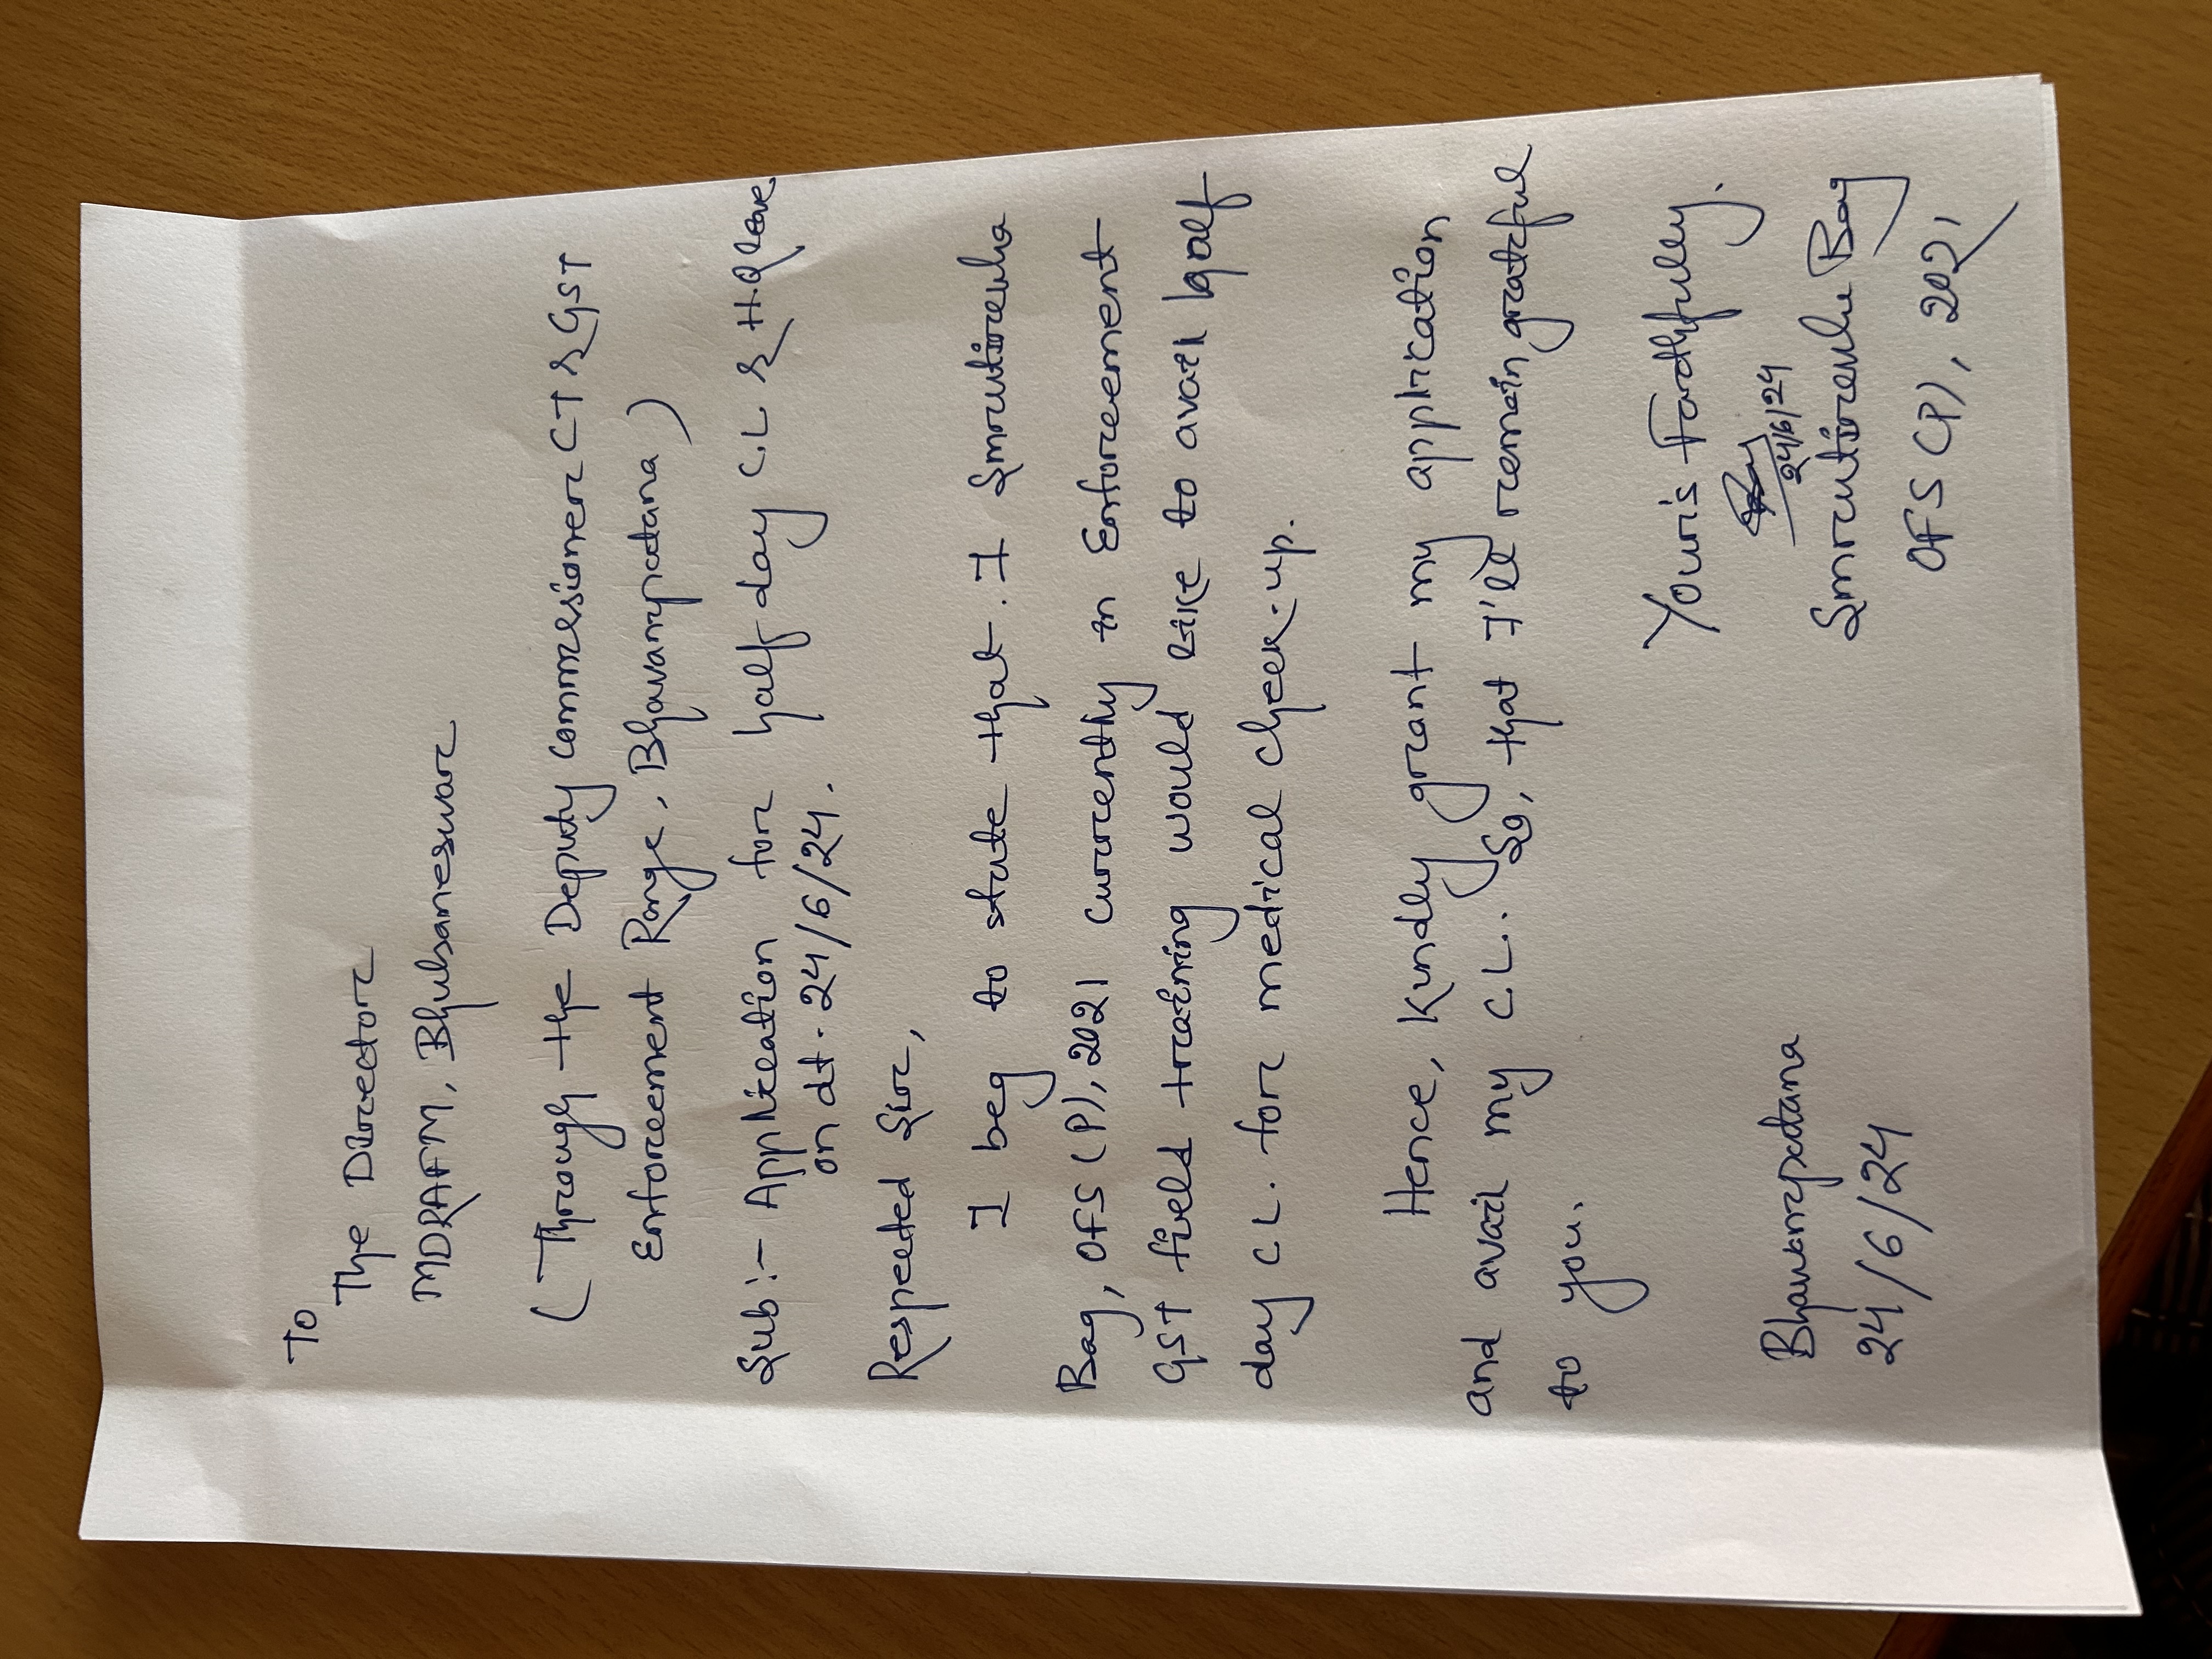 To
The Director
MDRAFM, Bhubaneswar
( Through the Deputy Commissioner CT & GST
Enforcement Range, Bhavanipatana )
Sub:- Application for half day C.L & H.Q leave
on dt. 24/6/24.
Respected Sir,
I beg to state that. I Smrutirekha
Bag, OFS (P), 2021 currently in Enforcement
GST field training would like to avail half
day C.L. for medical check-up.
Hence, Kindly grant my application
and avail my C.L.. So, that I'll remain grateful
to you.
Your's Faithfully.
24/6/24
Bhawanipatana
Smrutirekha Bag
24/6/24
OFS (P), 2021